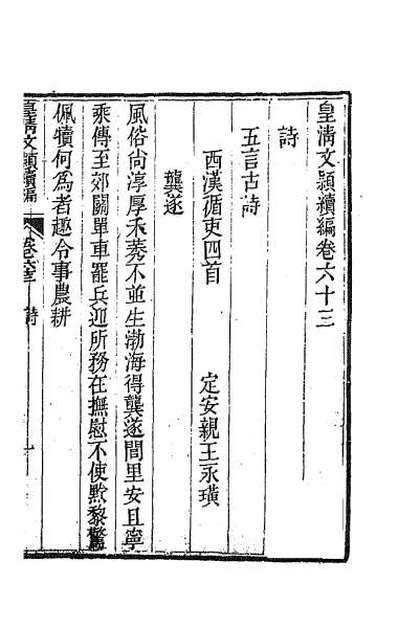 皇清文穎續編卷六十三
詩
五言古詩
西漢循吏四首 定安親王永璜
龔遂
風俗尚淳厚禾莠不並生渤海得龔遂閭里安且寧
乘傳至郊關單車罷兵迎所務在撫慰不使黔黎驚
佩犢何爲者趣令事農耕
皇清文穎續編 卷六十三 詩